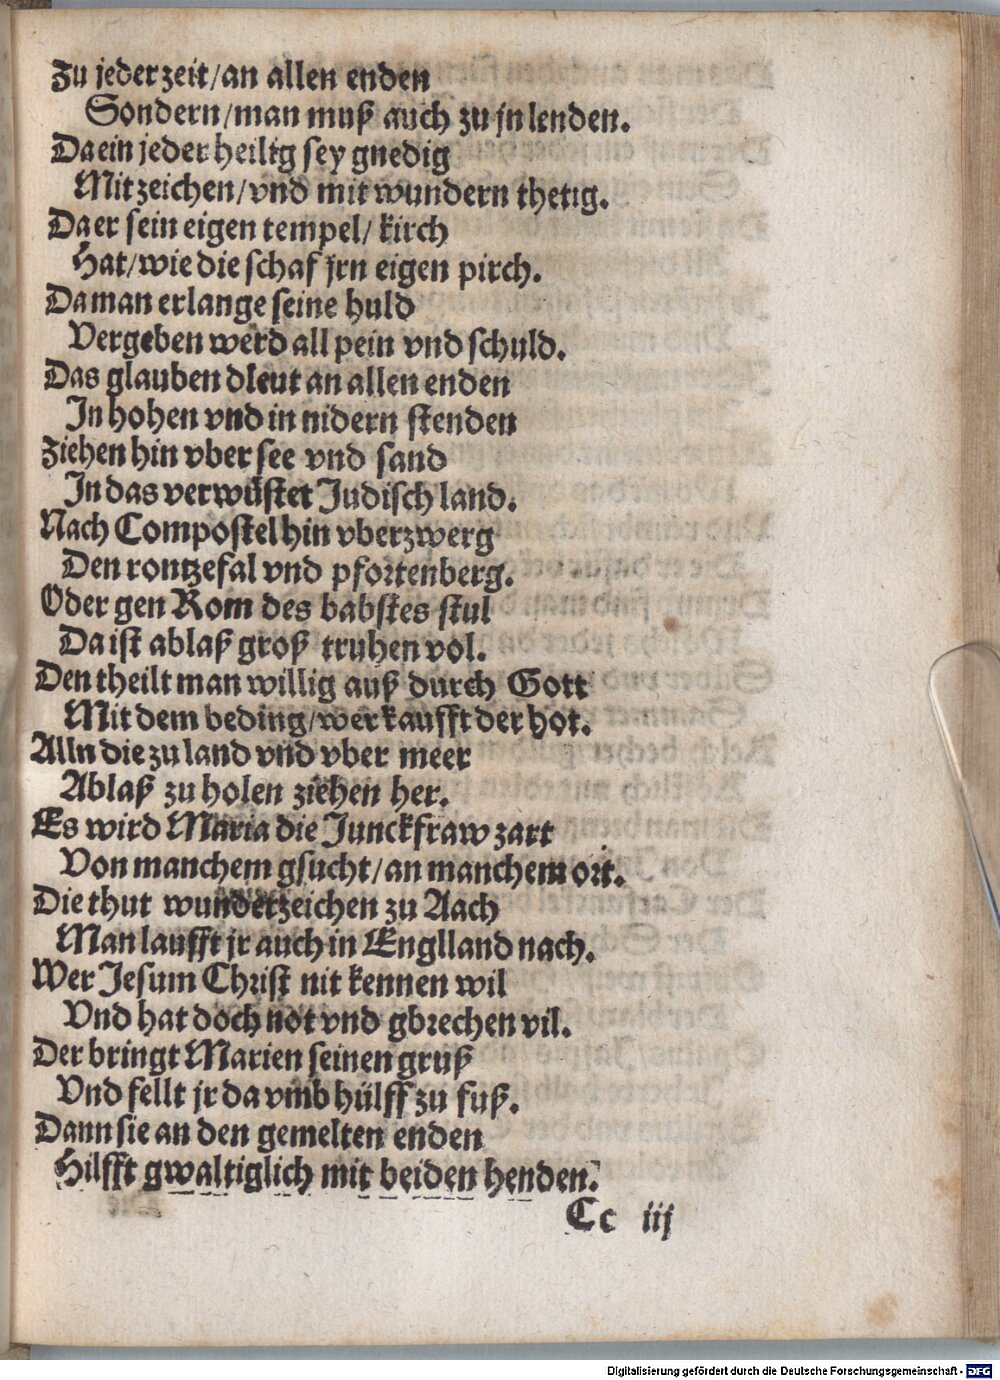 Zu jeder zeit/an allen enden
Sondern/man muß auch zu jn lenden.
Da ein jeder heilig sey gnedig
Mit zeichen/vnd mit wundern thetig.
Da er sein eigen tempel/kirch
Hat/wie die schaf jrn eigen pirch.
Da man erlange seine huld
Vergeben werd all pein vnd schuld.
Das glauben dleut an allen enden
In hohen vnd in nidern stenden
Ziehen hin vber see vnd sand
In das verwüstet Judisch land.
Nach Compostel hin vberzwerg
Den rontzefal vnd pfortenberg.
Oder gen Rom des babstes stul
Da ist ablaß groß truhen vol.
Den theilt man willig auß durch Gott
Mit dem beding/wer kaufft der hot.
Alln die zu land vnd vber meer
Ablaß zu holen ziehen her.
Es wird Maria die Junckfraw zart
Von manchem gsucht/an manchem ort.
Die thut wunderzeichen zu Aach
Man laufft jr auch in Englland nach.
Wer Jesum Christ nit kennen wil
Vnd hat doch not vnd gbrechen vil.
Der bringt Marien seinen gruß
Vnd fellt jr da vmb hülff zu fuß.
Dann sie an den gemelten enden
Hilfft gwaltiglich mit beiden henden.
Cc iij
Digitalisierung gefördert durch die Deutsche Forschungsgemeinschaft - DFG